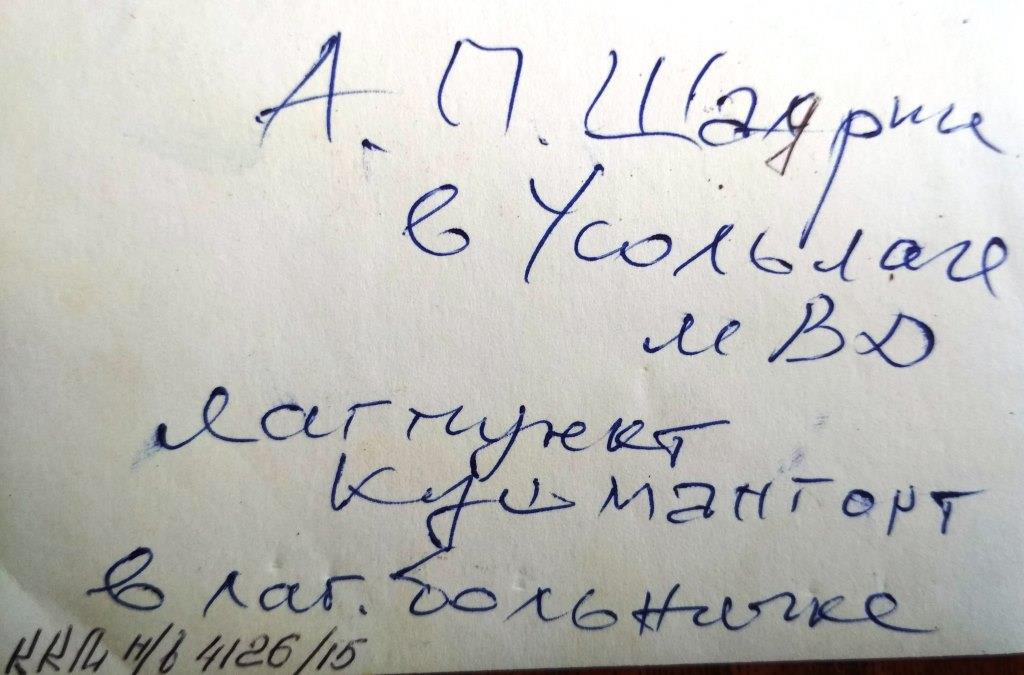 А. П. Шадрин
в Усольлаге
МВД
лагпункт
Кушмангорт
в лаг. больничке
ККМ н/в 4126/15